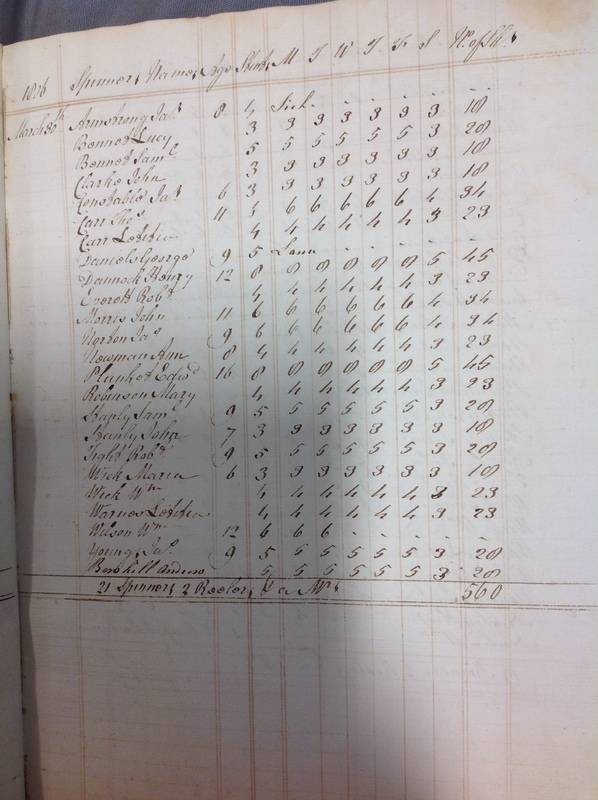 1826 Spinners Names Age Stint M T W T F S No. of Sks
March 20th Armstrong Jas 8 4 Sick - - - - - -
Bennet Lucy 3 3 3 3 3 3 3 18
Bennet Saml 5 5 5 5 5 5 3 28
Clarke John 3 3 3 3 3 3 3 18
Constable Jas 6 3 3 3 3 3 3 3 18
Carr Thos 11 6 6 6 6 6 4 34
Carr Letitia 4 4 4 4 4 4 3 23
Daniels George 9 5 Lame - - - - - -
Dannock Henry 12 8 8 8 8 8 8 5 45
Everett Robt 4 4 4 4 4 4 3 23
Morris John 11 6 6 6 6 6 6 4 34
Norton Jas 9 6 6 6 6 6 6 4 34
Newman Ann 8 4 4 4 4 4 4 3 23
Plunket Edwd 16 8 8 8 8 8 8 5 45
Robinson Mary 4 4 4 4 4 4 3 23
Staply Saml 9 5 5 5 5 5 5 3 28
Stanly John 7 3 3 3 3 3 3 3 18
Tight Robt 9 5 5 5 5 5 5 3 28
Wick Maria 6 3 3 3 3 3 3 3 18
Wick Wm 4 4 4 4 4 4 3 23
Warnes Letitia 4 4 4 4 4 4 3 23
Wilson Wm 12 6 6 6 - - - - -
Young Jas 9 5 5 5 5 5 5 3 28
Andrew 5 5 5 5 5 5 3 28
21 Spinners 2 Reelers 560